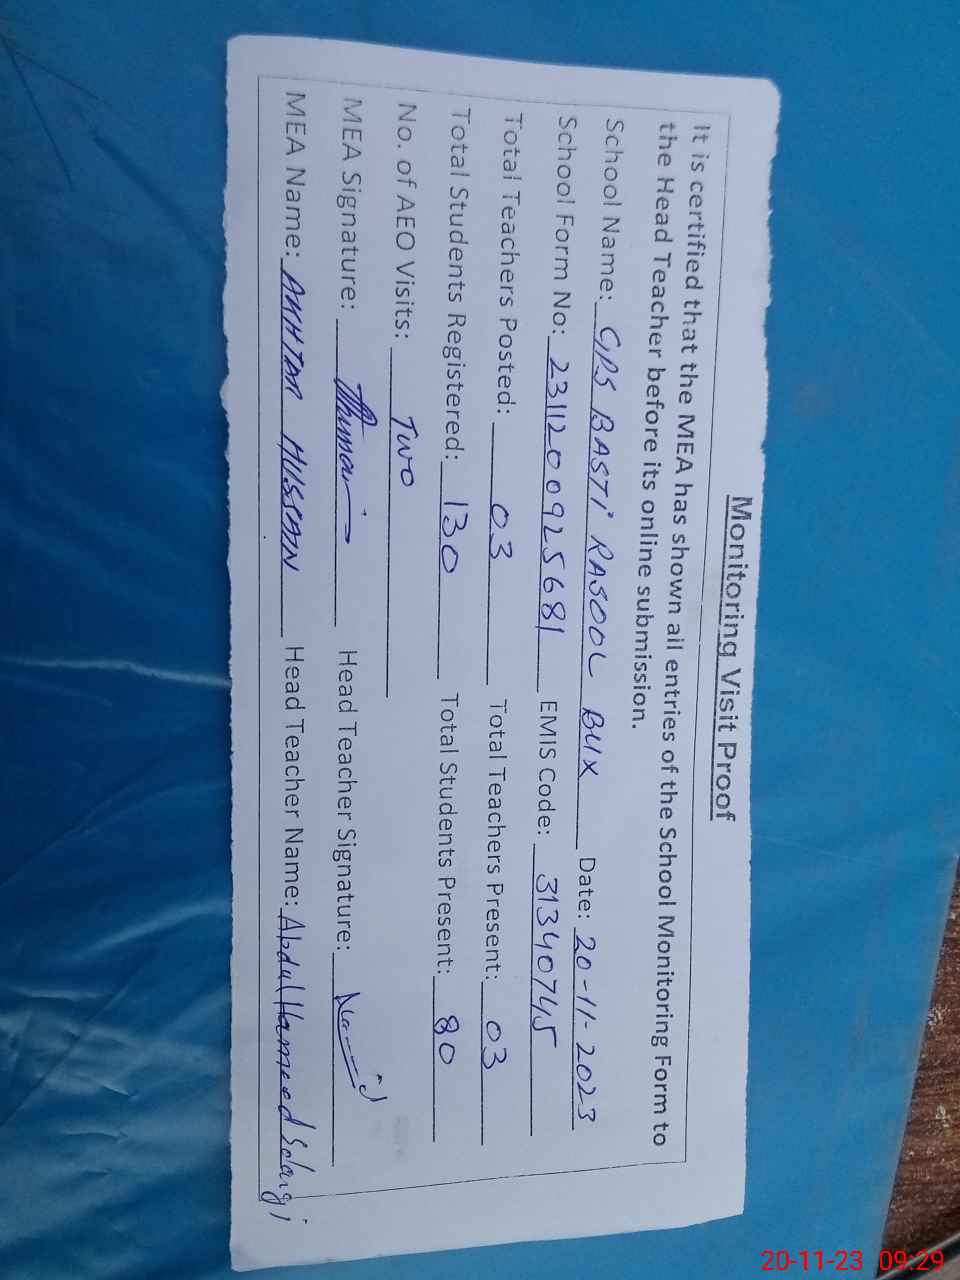 Monitoring Visit Proof
It is certified that the MEA has shown all entries of the School Monitoring Form to
the Head Teacher before its online submission.
School Name: GPS BASTI RASOOL BUX Date: 20-11-2023
School Form No: 2311200925681 EMIS Code: 31340745
Total Teachers Posted: 03 Total Teachers Present: 03
Total Students Registered: 130 Total Students Present: 80
No. of AEO Visits: Two
MEA Signature: Head Teacher Signature:
MEA Name: AKHTAR HUSSAIN Head Teacher Name: Abdul Hameed Solangi
20-11-23 09:29